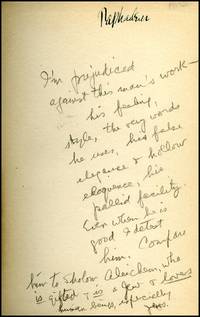 I'm prejudiced
against this man's work—
his feeling,
style, the very words
he uses, his false
elegance & hollow
eloquence, his
pallid facility.
Even when he is
good I detest
him. Compare
him to Sholom Aleichem, who
is gifted & is a Jew & loves
human beings, especially
Jews.